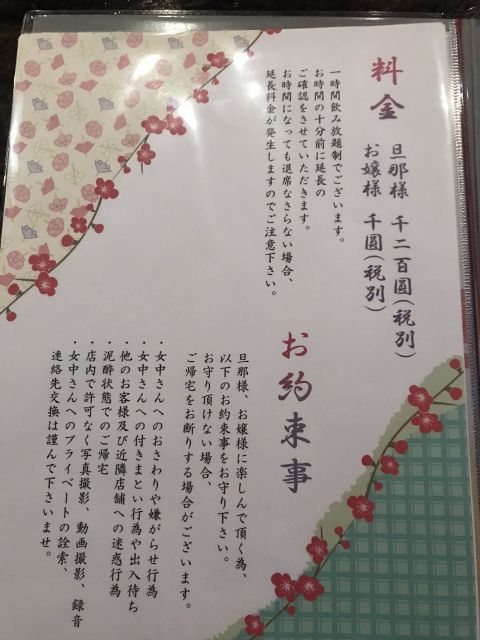 料金
旦那様 千二百圓(税別)
お嬢様 千圓(税別)
一時間飲み放題制でございます。
お時間の十分前に延長の
ご確認をさせていただきます。
お時間になっても退席なさらない場合、
延長料金が発生しますのでご注意下さい。
お約束事
旦那様、お嬢様に楽しんで頂く為、
以下のお約束事をお守り下さい。
お守り頂けない場合、
ご帰宅をお断りする場合がございます。
・女中さんへのおさわりや嫌がらせ行為
・女中さんへの付きまとい行為や出入待ち
・他のお客様及び近隣店舗への迷惑行為
・泥酔状態でのご帰宅
・店内で許可なく写真撮影、動画撮影、録音
・女中さんへのプライベートの詮索、
連絡先交換は謹んで下さいませ。